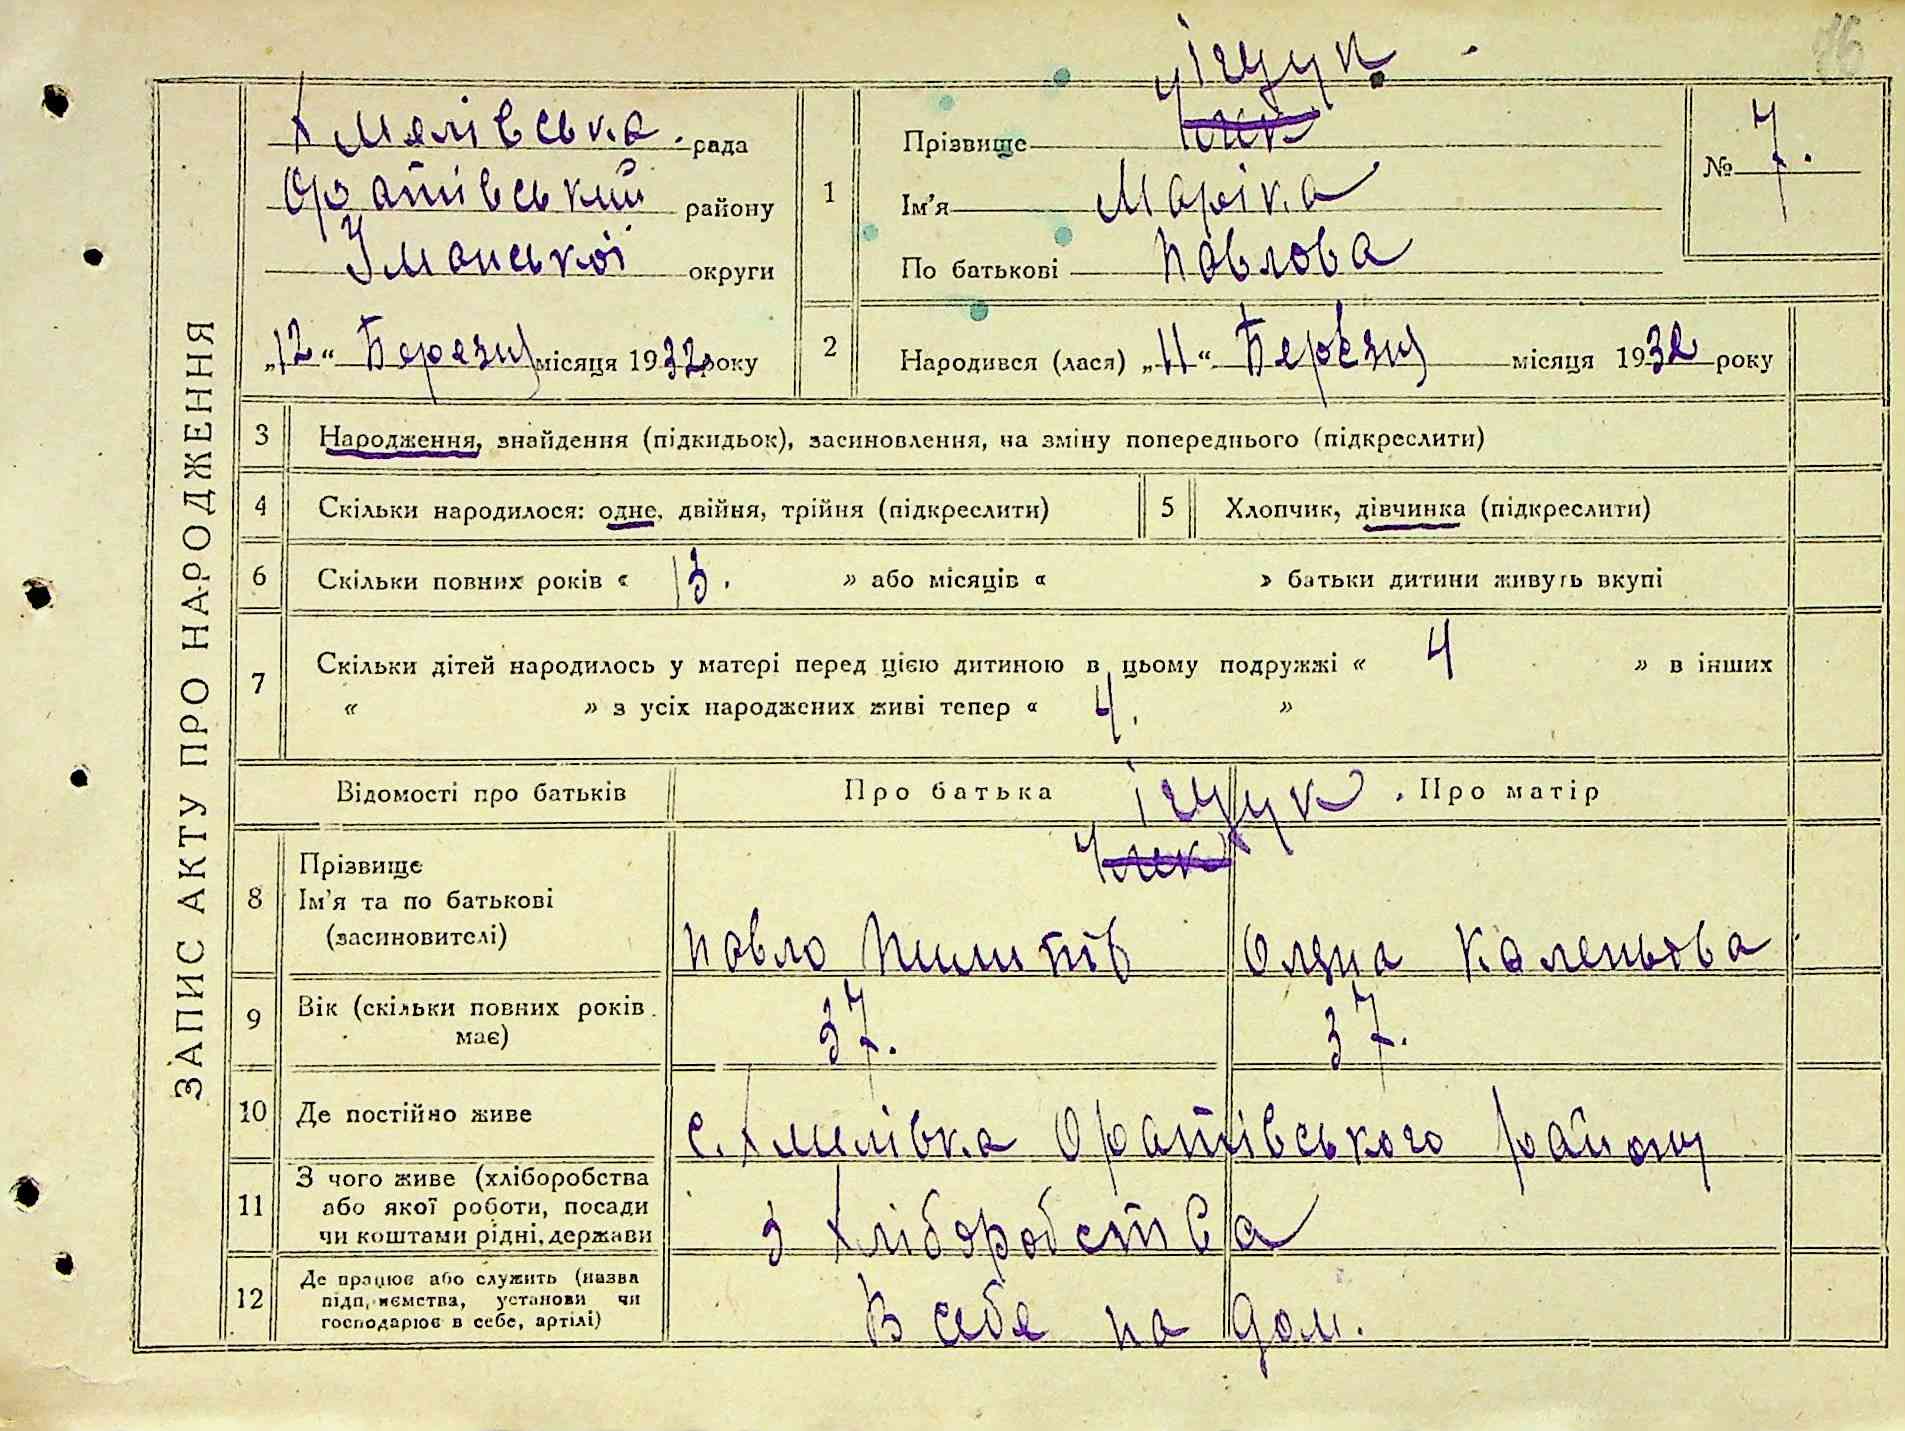 16
ЗАПИС АКТУ ПРО НАРОДЖЕННЯ
Хмелівська рада
Оратівський району
Уманської округи
„12“ Березня місяця 1932 року
1
Іщук
Прізвище
Ім'я Маріка
По батькові Павлова
№ 7.
2 Народився (лася) „11“ Березня місяця 1932 року
3 Народження, знайдення (підкидьок), засиновлення, на зміну попереднього (підкреслити)
4 Скільки народилося: одне, двійня, трійня (підкреслити)
5 Хлопчик, дівчинка (підкреслити)
6 Скільки повних років « 13. » або місяців « » батьки дитини живуть вкупі
7 Скільки дітей народилось у матері перед цією дитиною в цьому подружжі « 4 » в інших
« » з усіх народжених живі тепер « 4. »
Відомості про батьків Про батька Про матір
Іщук
8 Прізвище
Ім'я та по батькові
(засиновителі)
Павло Пилипів Оляна Каленьова
9 Вік (скільки повних років має) 37. 37.
10 Де постійно живе с. Хмелівка Оратівського району
11 З чого живе (хліборобства
або якої роботи, посади
чи коштами рідні, держави
з хліборобства
12 Де працює або служить (назва
підприємства, установи чи
господарює в себе, артілі)
В себе на дом.